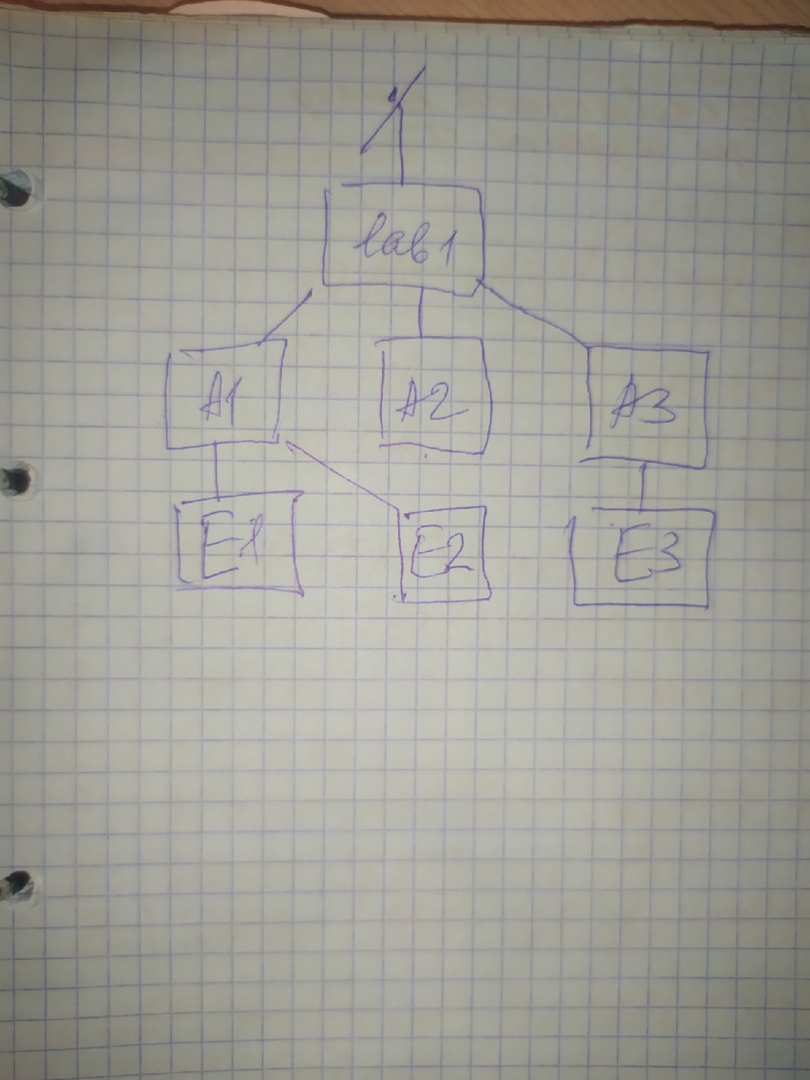 /
lab1
A1 A2 A3
E1 E2 E3